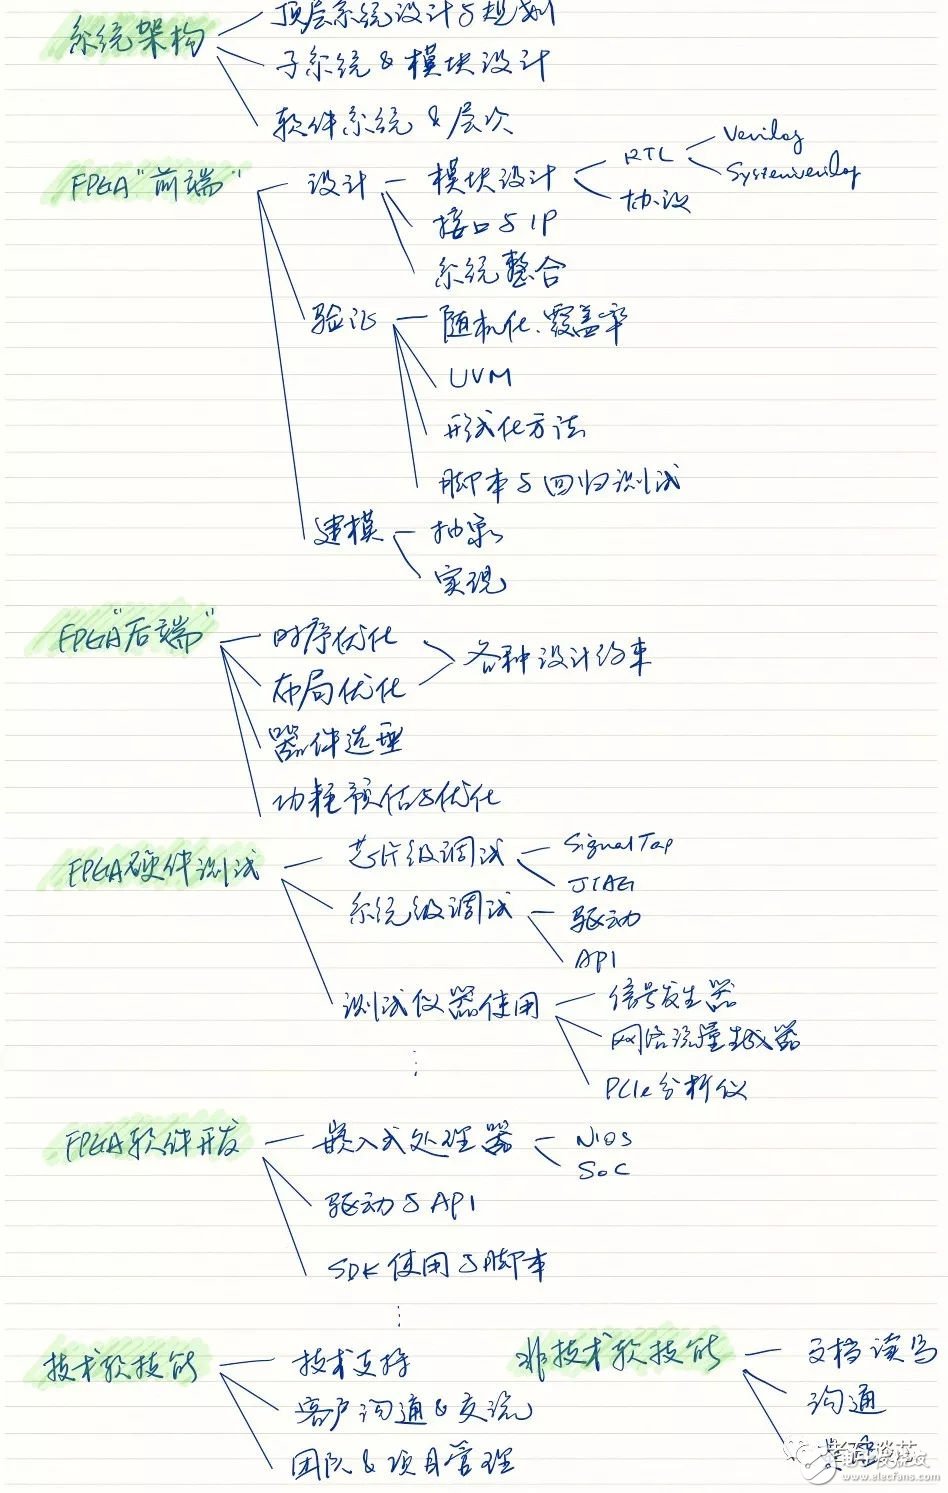 顶层系统设计与规划
系统架构
子系统&模块设计
软件系统&层次
Verilog
FPGA"前端"
设计
模块设计
RTL
SystemVerilog
协议
接口与IP
系统整合
验证
随机化、覆盖率
UVM
形式化方法
脚本与回归测试
建模
抽象
实现
FPGA"后端"
时序优化
各种设计约束
布局优化
器件选型
功耗预估与优化
FPGA硬件测试
芯片级调试
SignalTap
JTAG
系统级调试
驱动
API
测试仪器使用
信号发生器
网络流量生成器
PCIe分析仪
FPGA软件开发
嵌入式处理器
NIOS
SoC
驱动与API
SDK使用与脚本
技术软技能
技术支持
非技术软技能
文档读写
客户沟通&交流
沟通
团队&项目管理
www.elecfans.com